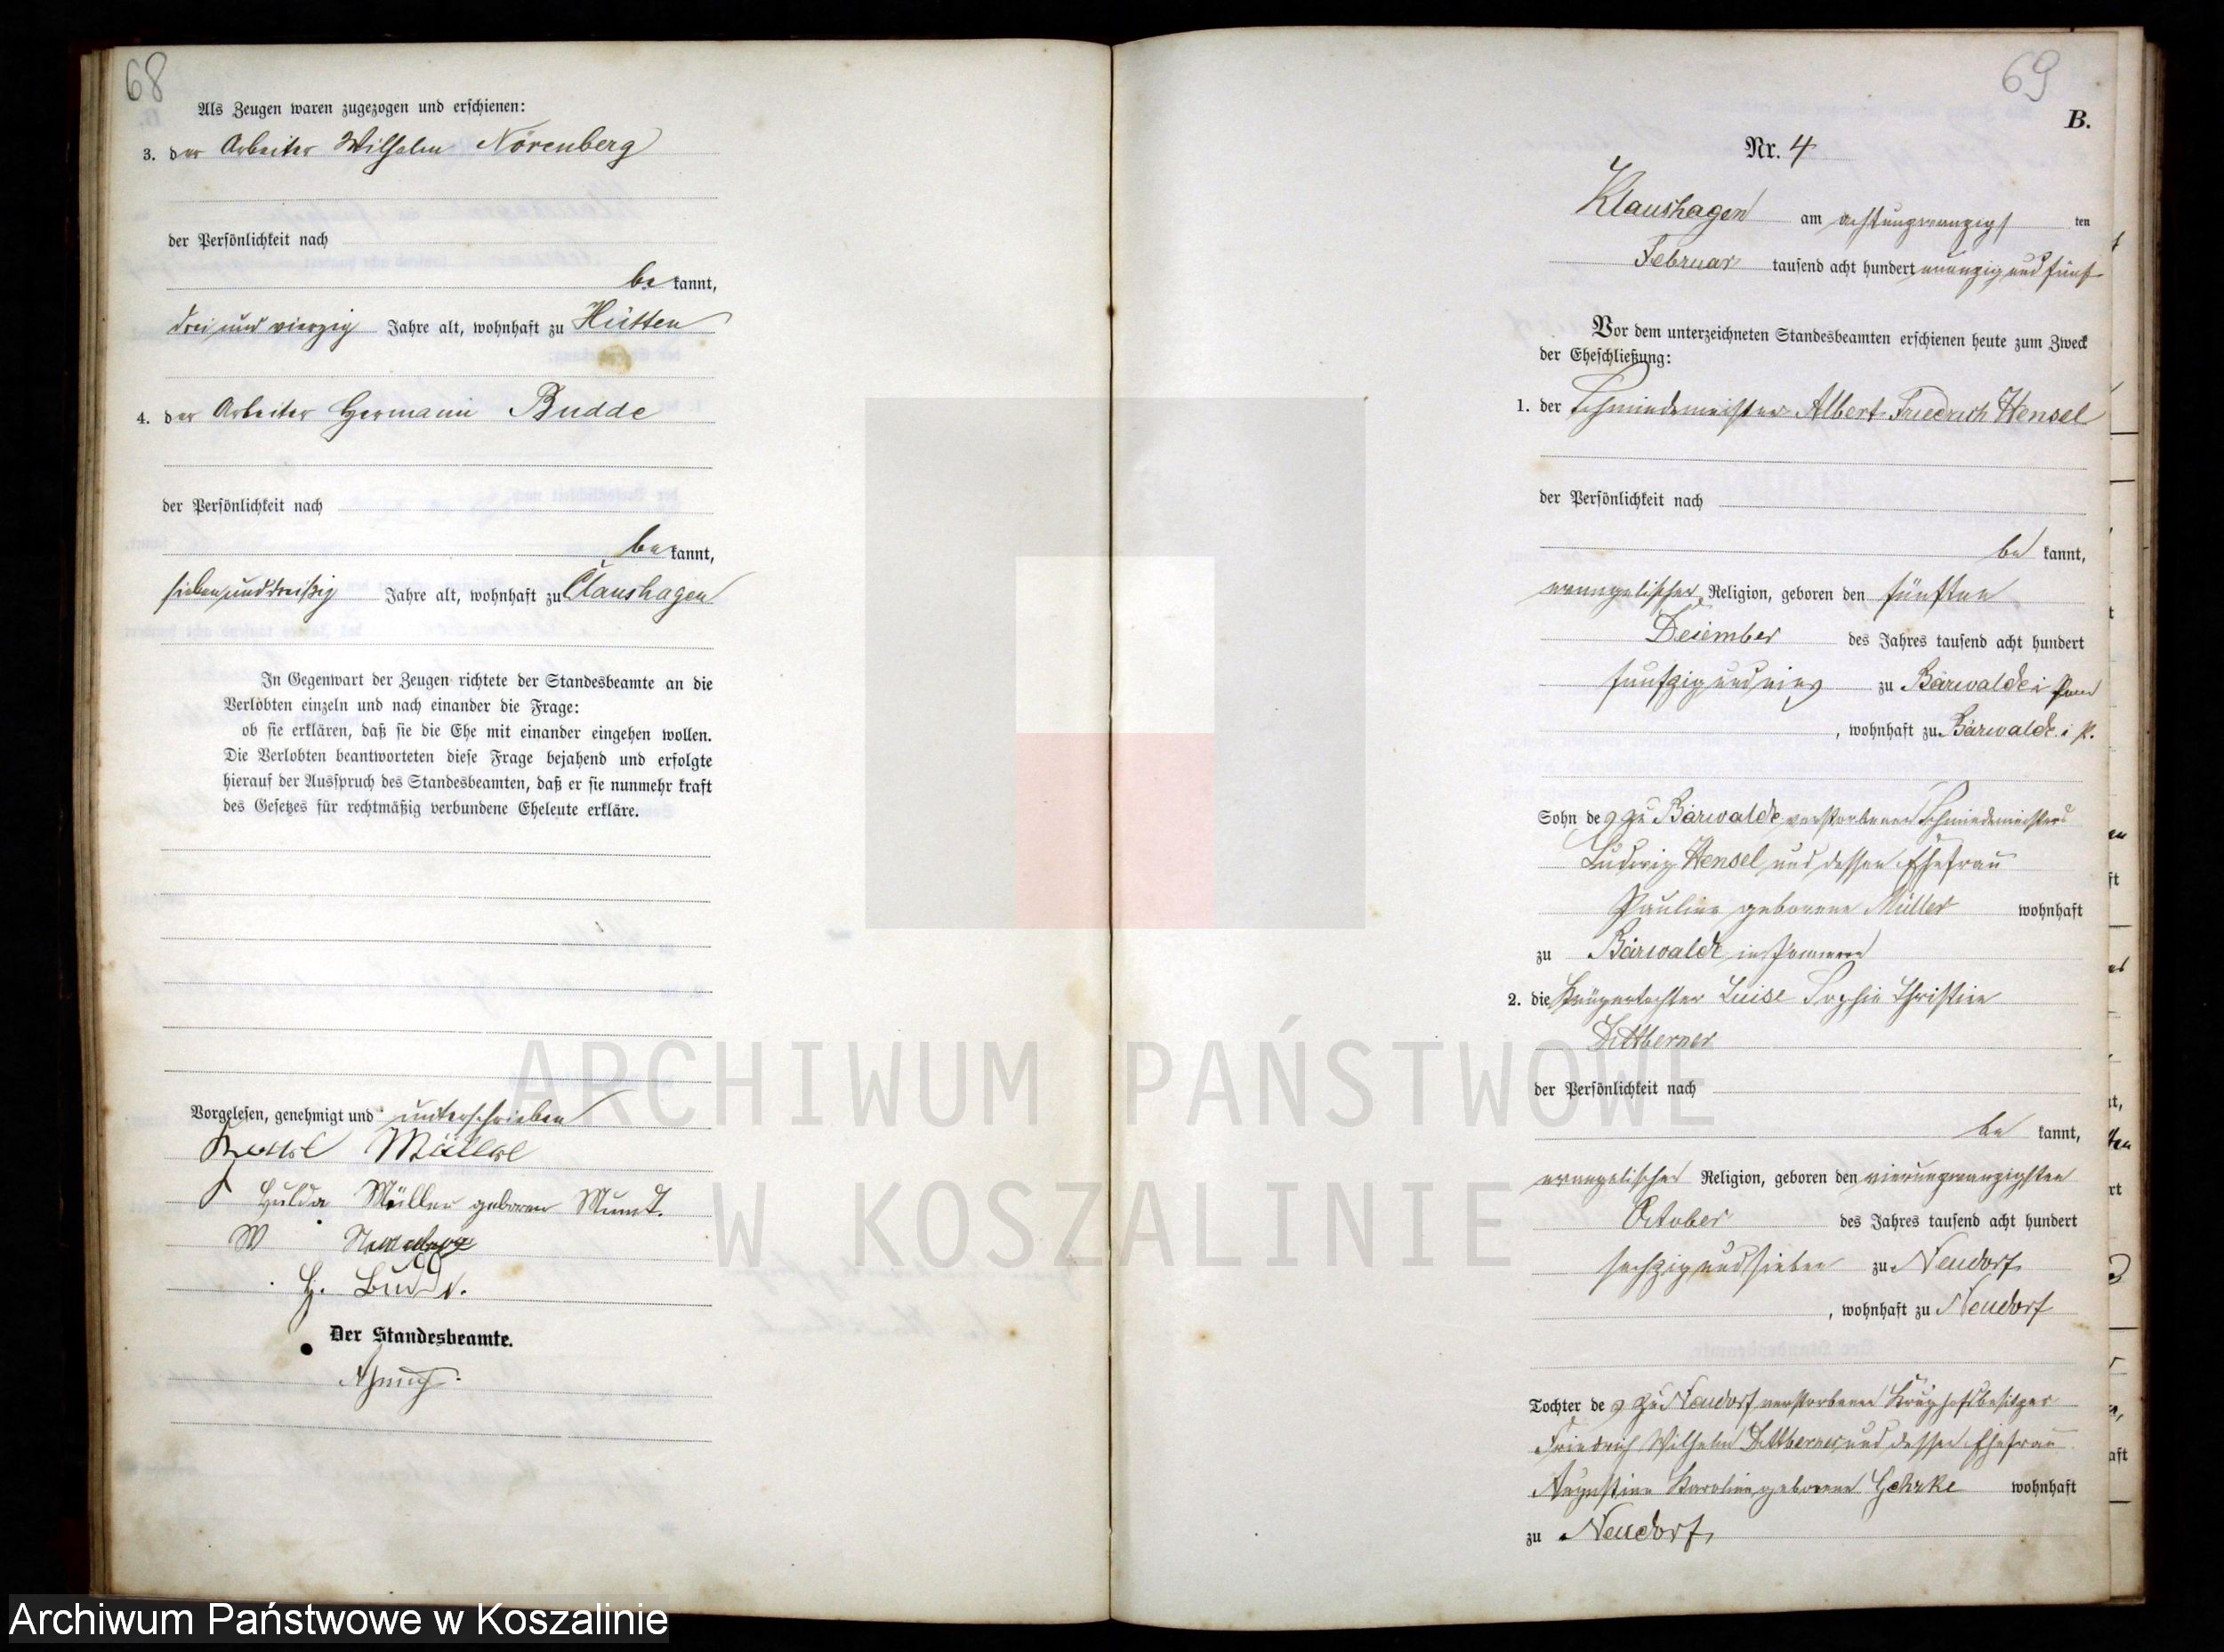 68
Als Zeugen waren zugezogen und erschienen:
3. der Arbeiter Wilhelm Nörenberg
der Persönlichkeit nach
be kannt,
drei und vierzig Jahre alt, wohnhaft zu Hütten
4. der Arbeiter Hermann Budde
der Persönlichkeit nach
be kannt,
sieben und dreißig Jahre alt, wohnhaft zu Claushagen
In Gegenwart der Zeugen richtete der Standesbeamte an die
Verlobten einzeln und nach einander die Frage:
ob sie erklären, daß sie die Ehe mit einander eingehen wollen.
Die Verlobten beantworteten diese Frage bejahend und erfolgte
hierauf der Ausspruch des Standesbeamten, daß er sie nunmehr kraft
des Gesetzes für rechtmäßig verbundene Eheleute erkläre.
Vorgelesen, genehmigt und unterschrieben
Hulda Müller geboren Mundt.
W
H. Budde.
Der Standesbeamte.
69
B.
Nr. 4
Klaushagen am achtundzwanzigsten
Februar tausend acht hundert neunzig und fünf
Vor dem unterzeichneten Standesbeamten erschienen heute zum Zweck
der Eheschließung:
1. der Schmiedemeister Albert Friedrich Hensel
der Persönlichkeit nach
be kannt,
evangelischer Religion, geboren den fünften
Dezember des Jahres tausend acht hundert
funfzig und eins zu Bärwalde i Pom
, wohnhaft zu Bärwalde i P.
Sohn des zu Bärwalde verstorbenen Schmiedemeisters
Ludwig Hensel und dessen Ehefrau
Pauline geborene Müller wohnhaft
zu Bärwalde in Pommern
2. die Krügertochter Luise Sophie Christine
Dittberner
der Persönlichkeit nach
be kannt,
evangelischer Religion, geboren den vierundzwanzigsten
October des Jahres tausend acht hundert
sechzig und sieben zu Neudorf
, wohnhaft zu Neudorf
Tochter des zu Neudorf verstorbenen Krughofbesitzer
Friedrich Wilhelm Dittberner und dessen Ehefrau
Augustine Karoline geborene Gehrke wohnhaft
zu Neudorf
ARCHIWUM PAŃSTWOWE
W KOSZALINIE
Archiwum Państwowe w Koszalinie